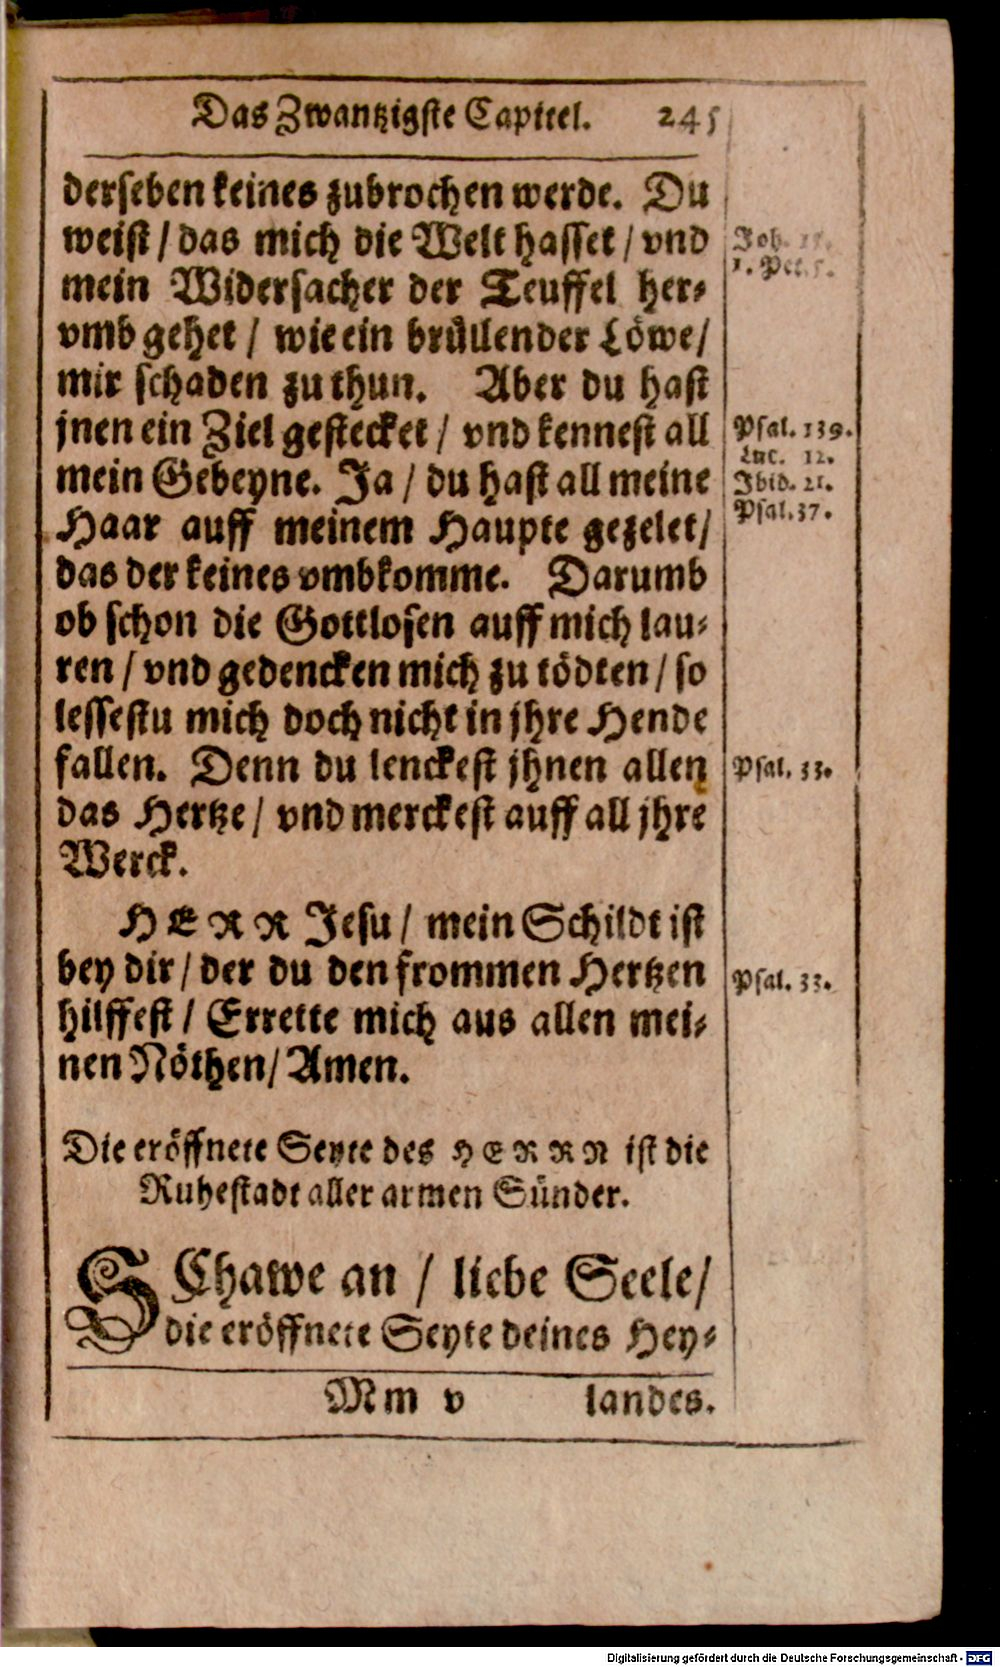 Das Zwantzigste Capittel. 245
derseben keines zubrochen werde. Du
weist / das mich die Welt hasset / vnd
mein Widersacher der Teuffel her⸗
vmb gehet / wie ein brüllender Löwe /
mir schaden zu thun. Aber du hast
jnen ein Ziel gestecket / vnd kennest all
mein Gebeyne. Ja / du hast all meine
Haar auff meinem Haupte gezelet /
das der keines vmbkomme. Darumb
ob schon die Gottlosen auff mich lau⸗
ren / vnd gedencken mich zu tödten / so
lessestu mich doch nicht in jhre Hende
fallen. Denn du lenckest jhnen allen
das Hertze / vnd merckest auff all jhre
Werck.
HERR Jesu / mein Schildt ist
bey dir / der du den frommen Hertzen
hilffest / Errette mich aus allen mei⸗
nen Nöthen / Amen.
Die eröffnete Seyte des HERRN ist die
Ruhestadt aller armen Sünder.
SChawe an / liebe Seele /
die eröffnete Seyte deines Hey⸗
Mm v landes.
Joh. 15.
1. Pet. 5.
Psal. 139.
Luc. 12.
Ibid. 21.
Psal. 37.
Psal. 33.
Psal. 33.
Digitalisierung gefördert durch die Deutsche Forschungsgemeinschaft - DFG